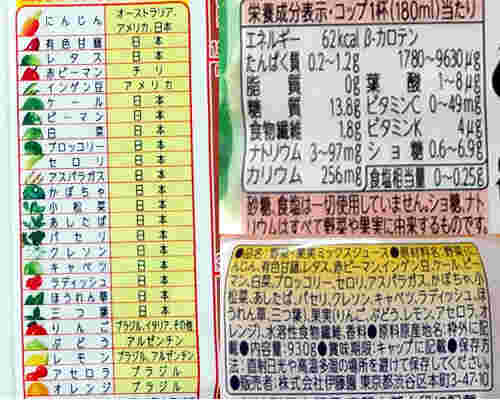 にんじん オーストラリア、アメリカ、日本
有色甘藷 日本
レタス 日本
赤ピーマン チリ
インゲン豆 アメリカ
ケール 日本
ピーマン 日本
白菜 日本
ブロッコリー 日本
セロリ 日本
アスパラガス 日本
かぼちゃ 日本
小松菜 日本
あしたば 日本
パセリ 日本
クレソン 日本
キャベツ 日本
ラディッシュ 日本
ほうれん草 日本
三つ葉 日本
りんご ブラジル、イタリア、その他
ぶどう アルゼンチン
レモン ブラジル、アルゼンチン
アセロラ ブラジル
オレンジ ブラジル
栄養成分表示・コップ1杯(180ml)当たり
エネルギー 62kcal β-カロテン
たんぱく質 0.2~1.2g 1780~9630μg
脂質 0g 葉酸 1~8μg
糖質 13.8g ビタミンC 0~49mg
食物繊維 1.8g ビタミンK 4μg
ナトリウム 3~97mg ショ糖 0.6~6.9g
カリウム 256mg 食塩相当量 0~0.25g
砂糖、食塩は一切使用していません。ショ糖、ナト
リウムはすべて野菜や果実に由来するものです。
●品名:野菜・果実ミックスジュース●原材料名:野菜(に
んじん、有色甘藷、レタス、赤ピーマン、インゲン豆、ケール、ピー
マン、白菜、ブロッコリー、セロリ、アスパラガス、かぼちゃ、小
松菜、あしたば、パセリ、クレソン、キャベツ、ラディッシュ、ほ
うれん草、三つ葉)、果実(りんご、ぶどう、レモン、アセロラ、オ
レンジ)、水溶性食物繊維、香料●原料原産地名:枠外に記
載●内容量:930g●賞味期限:キャップに記載●保存方
法:直射日光や高温多湿の場所を避けて保存してください。
●販売者:株式会社伊藤園 東京都渋谷区本町3-47-10